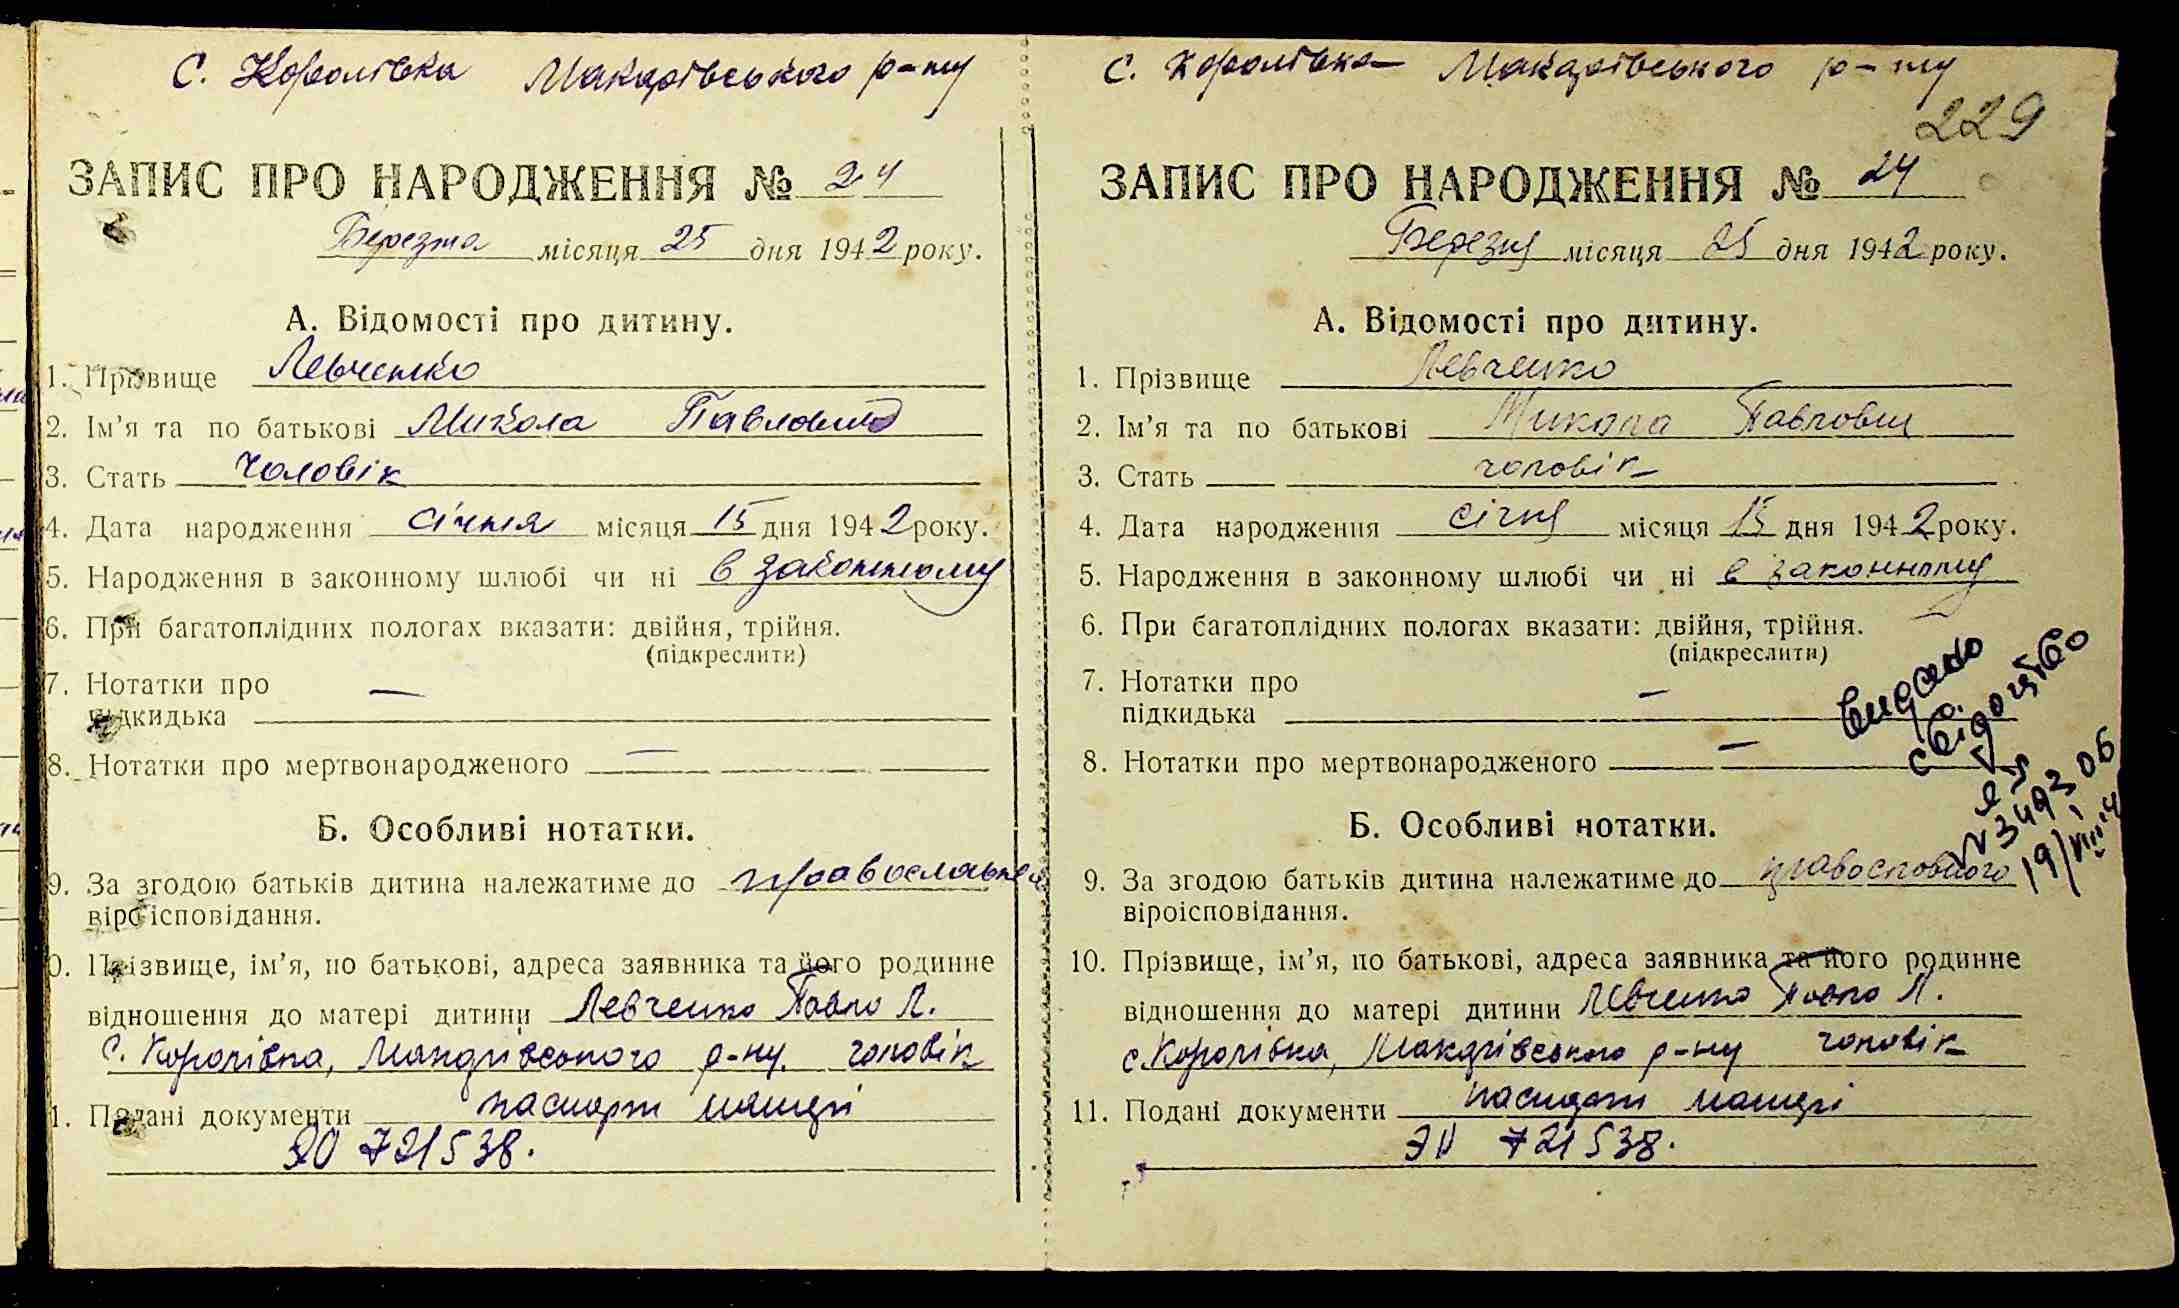 С. Королівка Макарівського р-ну
ЗАПИС ПРО НАРОДЖЕННЯ № 24
Березня місяця 25 дня 1942 року.
А. Відомості про дитину.
1. Прізвище Левченко
2. Ім’я та по батькові Микола Павлович
3. Стать чоловік
4. Дата народження січня місяця 15 дня 1942 року.
5. Народження в законному шлюбі чи ні в законному
6. При багатоплідних пологах вказати: двійня, трійня.
(підкреслити)
7. Нотатки про —
підкидька
8. Нотатки про мертвонародженого —
Б. Особливі нотатки.
9. За згодою батьків дитина належатиме до православного
віроісповідання.
0. Прізвище, ім’я, по батькові, адреса заявника та його родинне
відношення до матері дитини Левченко Павло Л.
с. Королівка, Макарівського р-ну. чоловік
1. Подані документи паспорт матері
721538.
С. Королівка Макарівського р-ну
229
ЗАПИС ПРО НАРОДЖЕННЯ № 24
Березня місяця 25 дня 1942 року.
А. Відомості про дитину.
1. Прізвище Левченко
2. Ім’я та по батькові Микола Павлович
3. Стать чоловік
4. Дата народження січня місяця 15 дня 1942 року.
5. Народження в законному шлюбі чи ні в законному
6. При багатоплідних пологах вказати: двійня, трійня.
(підкреслити)
7. Нотатки про —
підкидька
8. Нотатки про мертвонародженого —
Видано
свідоцтво
Б. Особливі нотатки.
9. За згодою батьків дитина належатиме до православного
віроісповідання.
10. Прізвище, ім’я, по батькові, адреса заявника та його родинне
відношення до матері дитини Левченко Павло Л.
с. Королівка, Макарівського р-ну чоловік
11. Подані документи паспорт матері
721538.